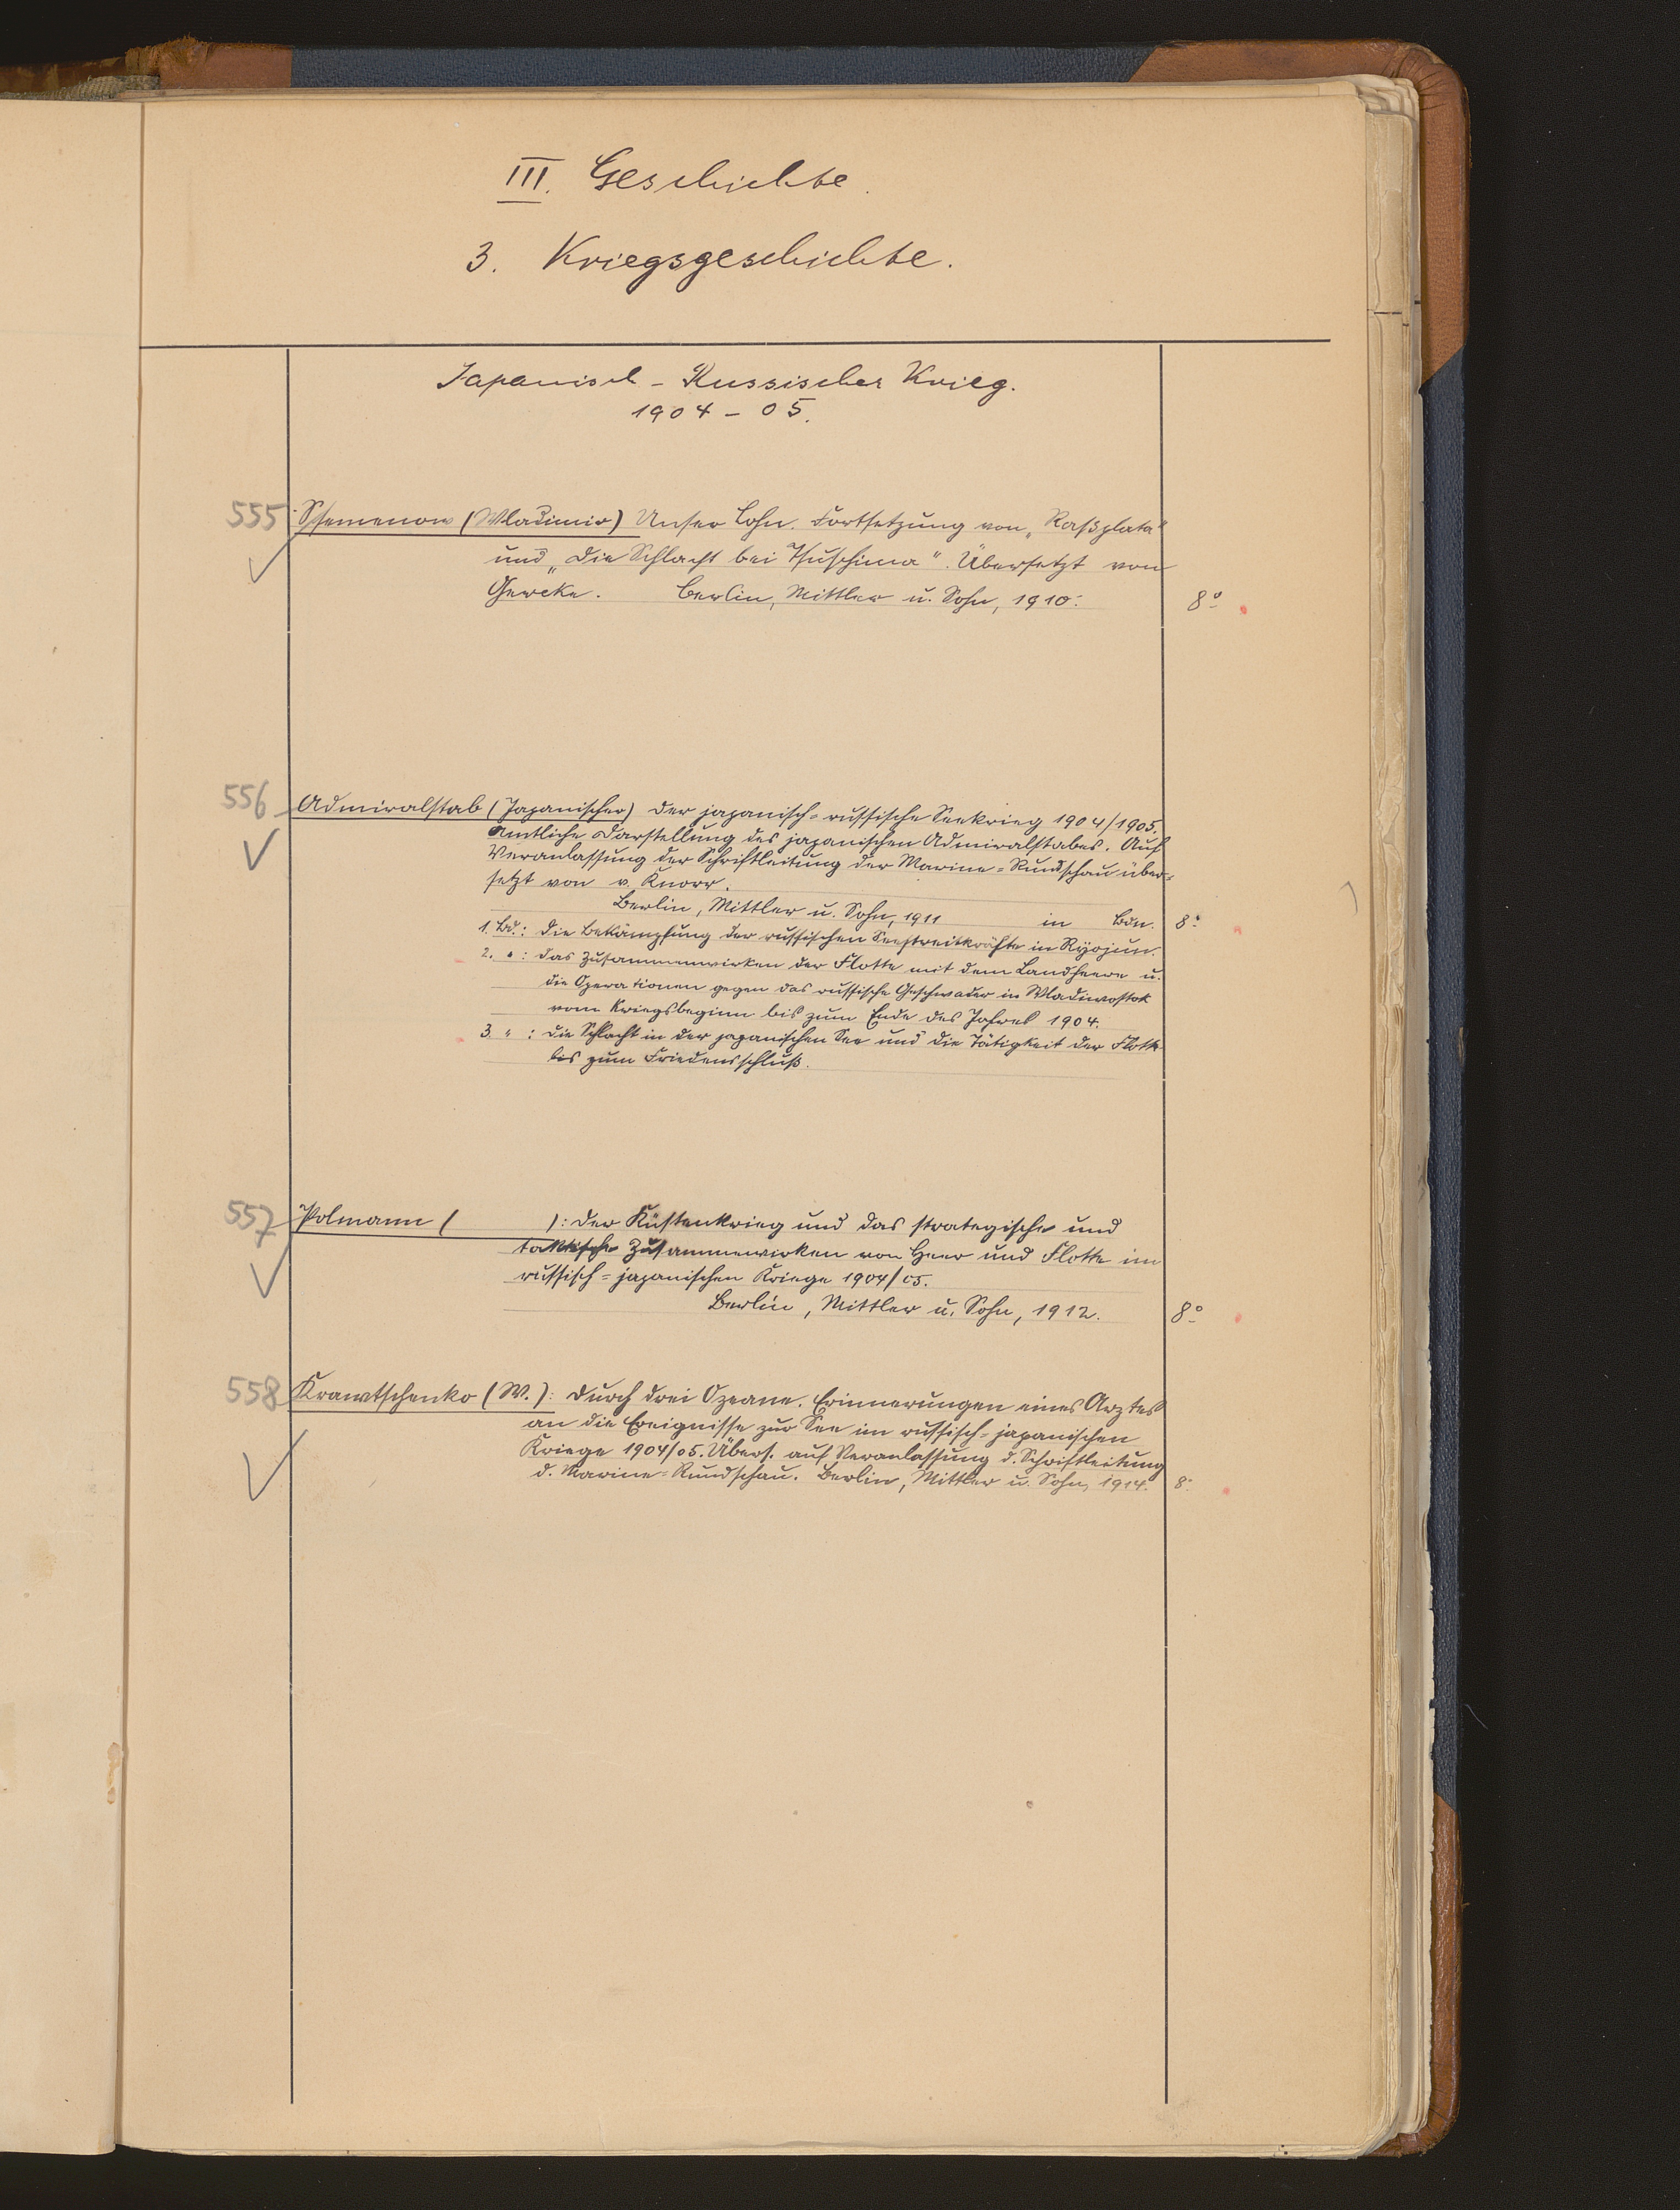 III. Geschichte.
3. Kriegsgeschichte.
Japanisch-Russischer Krieg.
1904-05.
555 Ssemenow (Wladimir) Unser Lohn. Fortsetzung von „Raßplata"
und „Die Schlacht bei Tsuschima". Übersetzt von
Gercke. Berlin, Mittler u. Sohn, 1910. 8°
556 Admiralstab (Japanischer) Der japanisch=russische Seekrieg 1904/1905.
Amtliche Darstellung des japanischen Admiralstabes. Auf
Veranlassung der Schriftleitung der Marine=Rundschau über=
setzt von v. Knorr.
Berlin, Mittler u. Sohn, 1911 in Bdn. 8°
1. Bd.: Die Bekämpfung der russischen Seestreitkräfte in Ryojun.
2. " : Das Zusammenwirken der Flotte mit dem Landheere u.
die Operationen gegen das russische Geschwader in Wladiwostok
vom Kriegsbeginn bis zum Ende des Jahres 1904.
3. " : Die Schlacht in der japanischen See und die Tätigkeit der Flotte
bis zum Friedensschluß.
557 Polmann ( ): Der Küstenkrieg und das strategische und
taktische Zusammenwirken von Heer und Flotte im
russisch=japanischen Kriege 1904/05.
Berlin, Mittler u. Sohn, 1912. 8°
558 Krawtschenko (W.): Durch drei Ozeane. Erinnerungen eines Arztes
an die Ereignisse zur See im russisch=japanischen
Kriege 1904/05. Übers. auf Veranlassung d. Schriftleitung
d. Marine=Rundschau. Berlin, Mittler u. Sohn, 1914. 8°